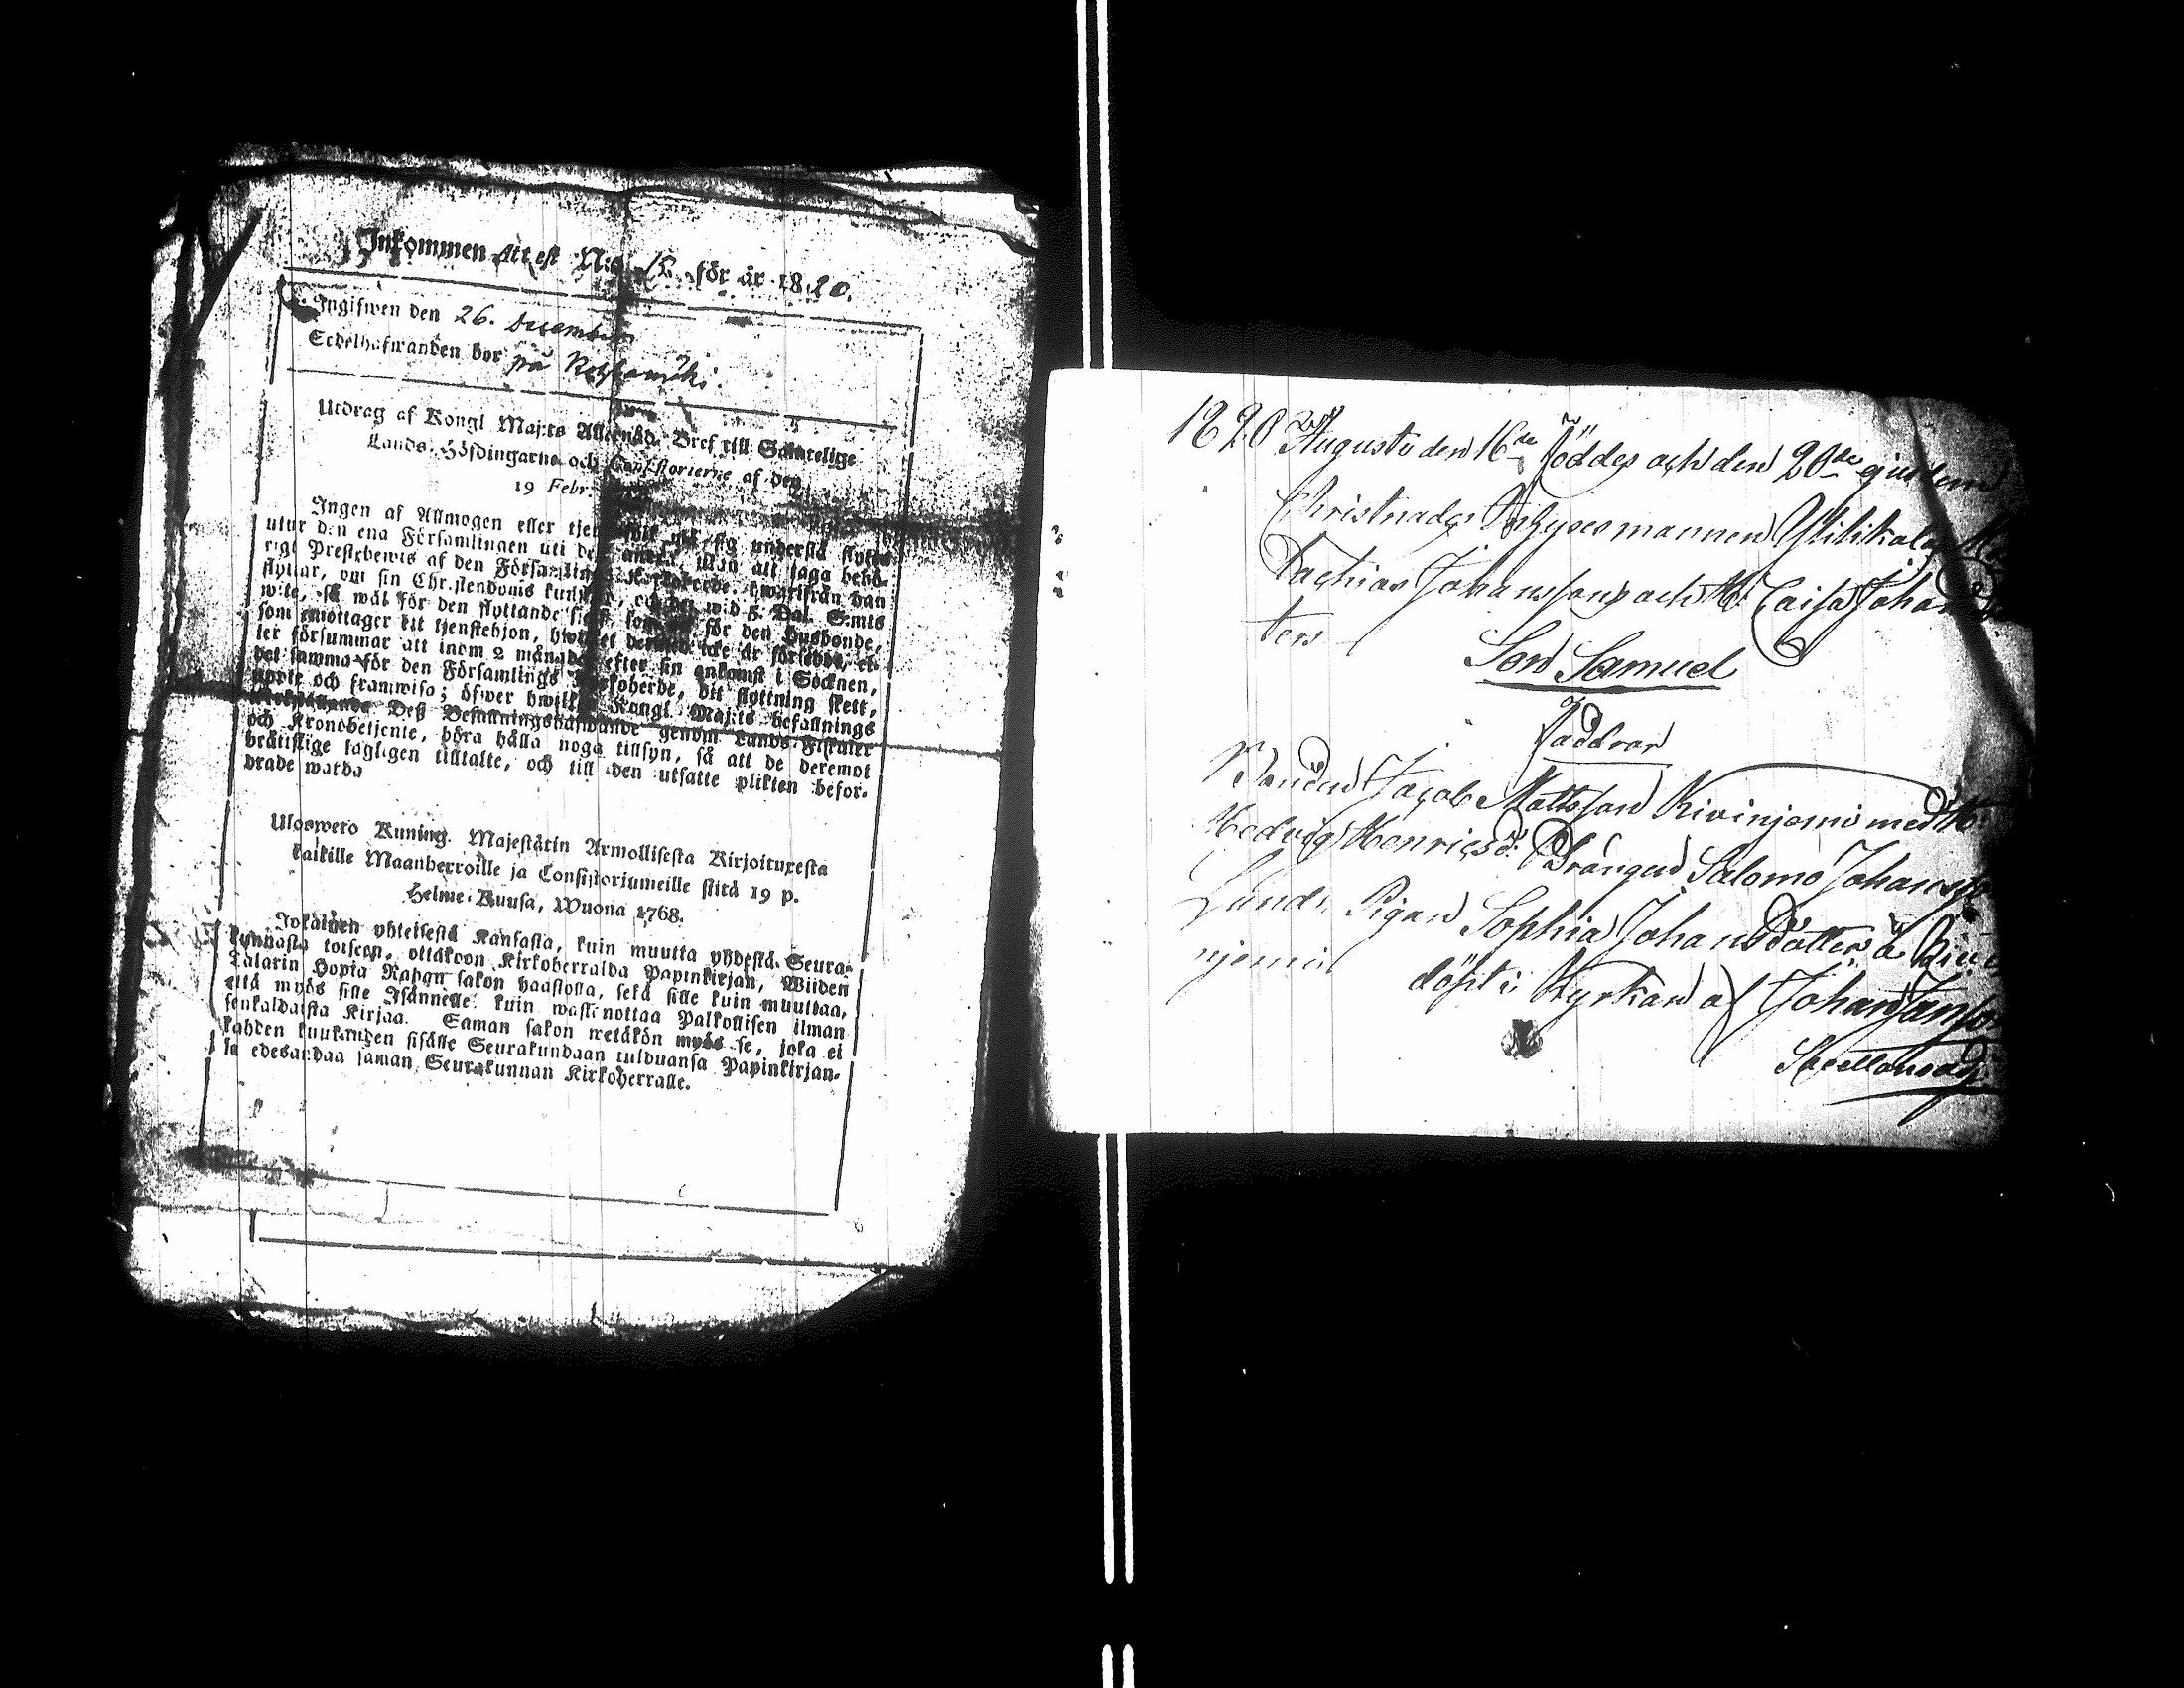 Inkommen Attest N:o 15. för år 1820.
Ingifwen den 26. December
Sedelhafwanden bor på
Utdrag af Kongl Maj:ts Allernåd. Bref till Samtelige
Lands-Höfdingarne och Consistorierne af den
19 Febr.
Ingen af Allmogen eller tjen sig understå flytta
utur den ena Församlingen uti den andra, utan att taga behö-
rigt Prestebewis af den Församlings Kyrkoherde, hwarifrån han
flyttar, om sin Christendoms kunskap, och det wid 5. Dal. S:mts
wite, så wäl för den flyttande sielf, som för den Husbonde,
som emottager ett tjenstehjon, hwilket dermed icke är försedt, el-
ler försummar att inom 2 månader efter sin ankomst i Socknen,
det samma för den Församlings Kyrkoherde, dit flyttning skett,
upte och framwisa; öfwer hwilket Kongl Maj:ts befallnings
Deß Befallningshafwande genom Lands-Fiskaler
och Kronobetjente, böra hålla noga tillsyn, så att de deremot
brätslige lagligen tilltalte, och till den utsatte plikten befor-
drade warda
Uloswero Kuning. Majestätin Armollisesta Kirjoituxesta
kaikille Maanherroille ja Consistoriumeille siitä 19 p.
Helme-Kuusa, Wuona 1768.
Jokainen yhteisestä Kansasta, kuin muutta yhdestä Seura-
kunnasta toiseen, ottakoon Kirkoherralda Papinkirjan, Wiiden
Talarin Hopia Rahan sakon haastolla, sekä sille kuin muuttaa,
että myös sille Isännelle kuin wastanottaa Palkollisen ilman
senkaldaista Kirjaa. Saman sakon wetäkön myös se, joka ei
kahden kuukauden sisälle Seurakundaan tulduansa Papinkirjan-
sa edesandaa saman Seurakunnan Kirkoherralle.
1820 Augusti den 16de föddes och den 20de ejusdem
Christnades Inhysesmannen
Johansson och H: Caisa Johans
ters
Son Samuel
Faddrar
Bonden Jacob Mattsson Kivinjemi med H:
Hedvig Henricsd: Drängen Salomo Johansson
Lund. Pigan Sophia Johansdotter å Kivi
njemi döpt i Kyrkan af Johan
Sacellanus